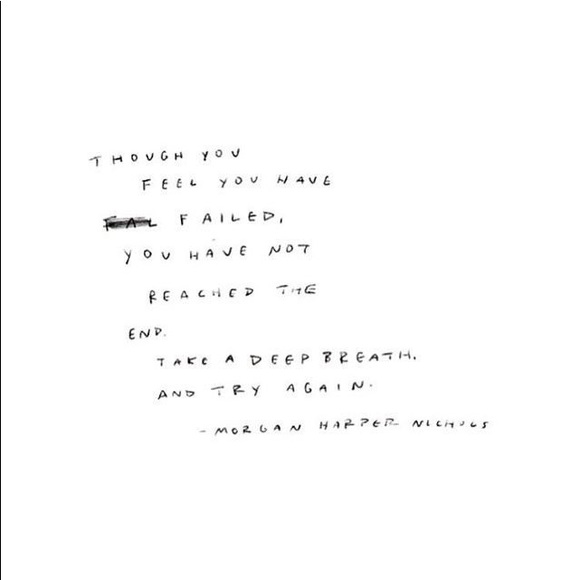 THOUGH YOU
FEEL YOU HAVE
FAILED,
YOU HAVE NOT
REACHED THE
END.
TAKE A DEEP BREATH.
AND TRY AGAIN.
- MORGAN HARPER NICHOLS